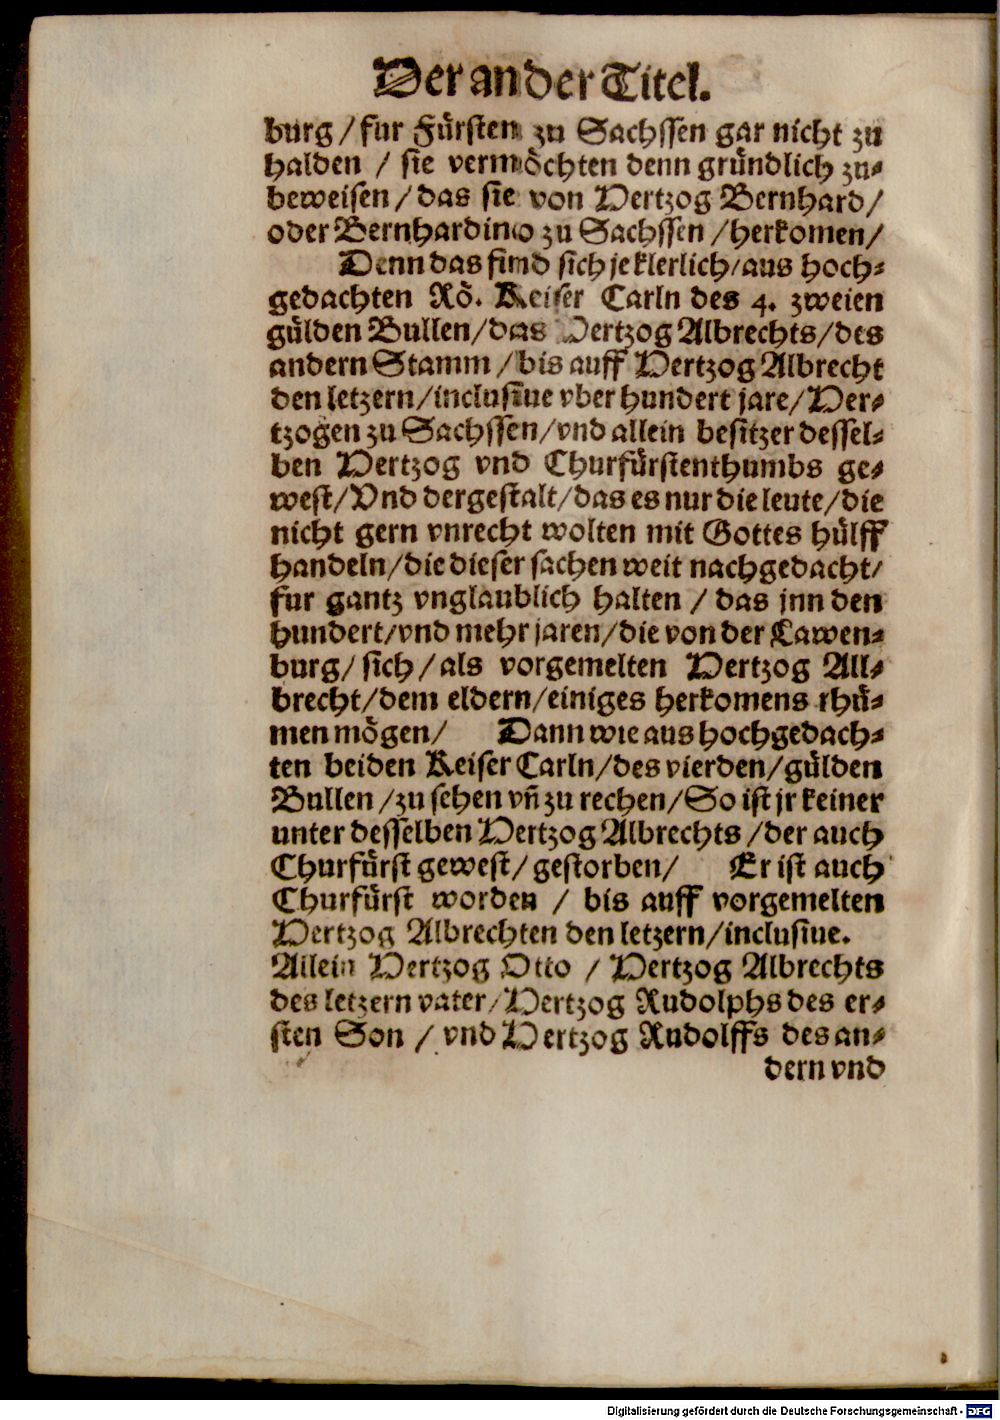 Der ander Titel.
burg / fur Fürsten zu Sachssen gar nicht zu
halden / sie vermöchten denn gründlich zu-
beweisen / das sie von Hertzog Bernhard /
oder Bernhardino zu Sachssen / herkomen /
Denn das find sich je klerlich / aus hoch-
gedachten Rö. Keiser Carln des 4. zweien
gülden Bullen / das Hertzog Albrechts / des
andern Stamm / bis auff Hertzog Albrecht
den letzern / inclusiue vber hundert jare / Her-
tzogen zu Sachssen / vnd allein besitzer dessel-
ben Hertzog vnd Churfürstenthumbs ge-
west / Vnd dergestalt / das es nur die leute / die
nicht gern vnrecht wolten mit Gottes hülff
handeln / die dieser sachen weit nachgedacht /
fur gantz vnglaublich halten / das jnn den
hundert / vnd mehr jaren / die von der Lawen-
burg / sich / als vorgemelten Hertzog All-
brecht / dem eldern / einiges herkomens rhü-
men mögen / Dann wie aus hochgedach-
ten beiden Keiser Carln / des vierden / gülden
Bullen / zu sehen vñ zu rechen / So ist jr keiner
unter desselben Hertzog Albrechts / der auch
Churfürst gewest / gestorben / Er ist auch
Churfürst worden / bis auff vorgemelten
Hertzog Albrechten den letzern / inclusiue.
Allein Hertzog Otto / Hertzog Albrechts
des letzern vater / Hertzog Rudolphs des er-
sten Son / vnd Hertzog Rudolffs des an-
dern vnd
Digitalisierung gefördert durch die Deutsche Forschungsgemeinschaft - DFG